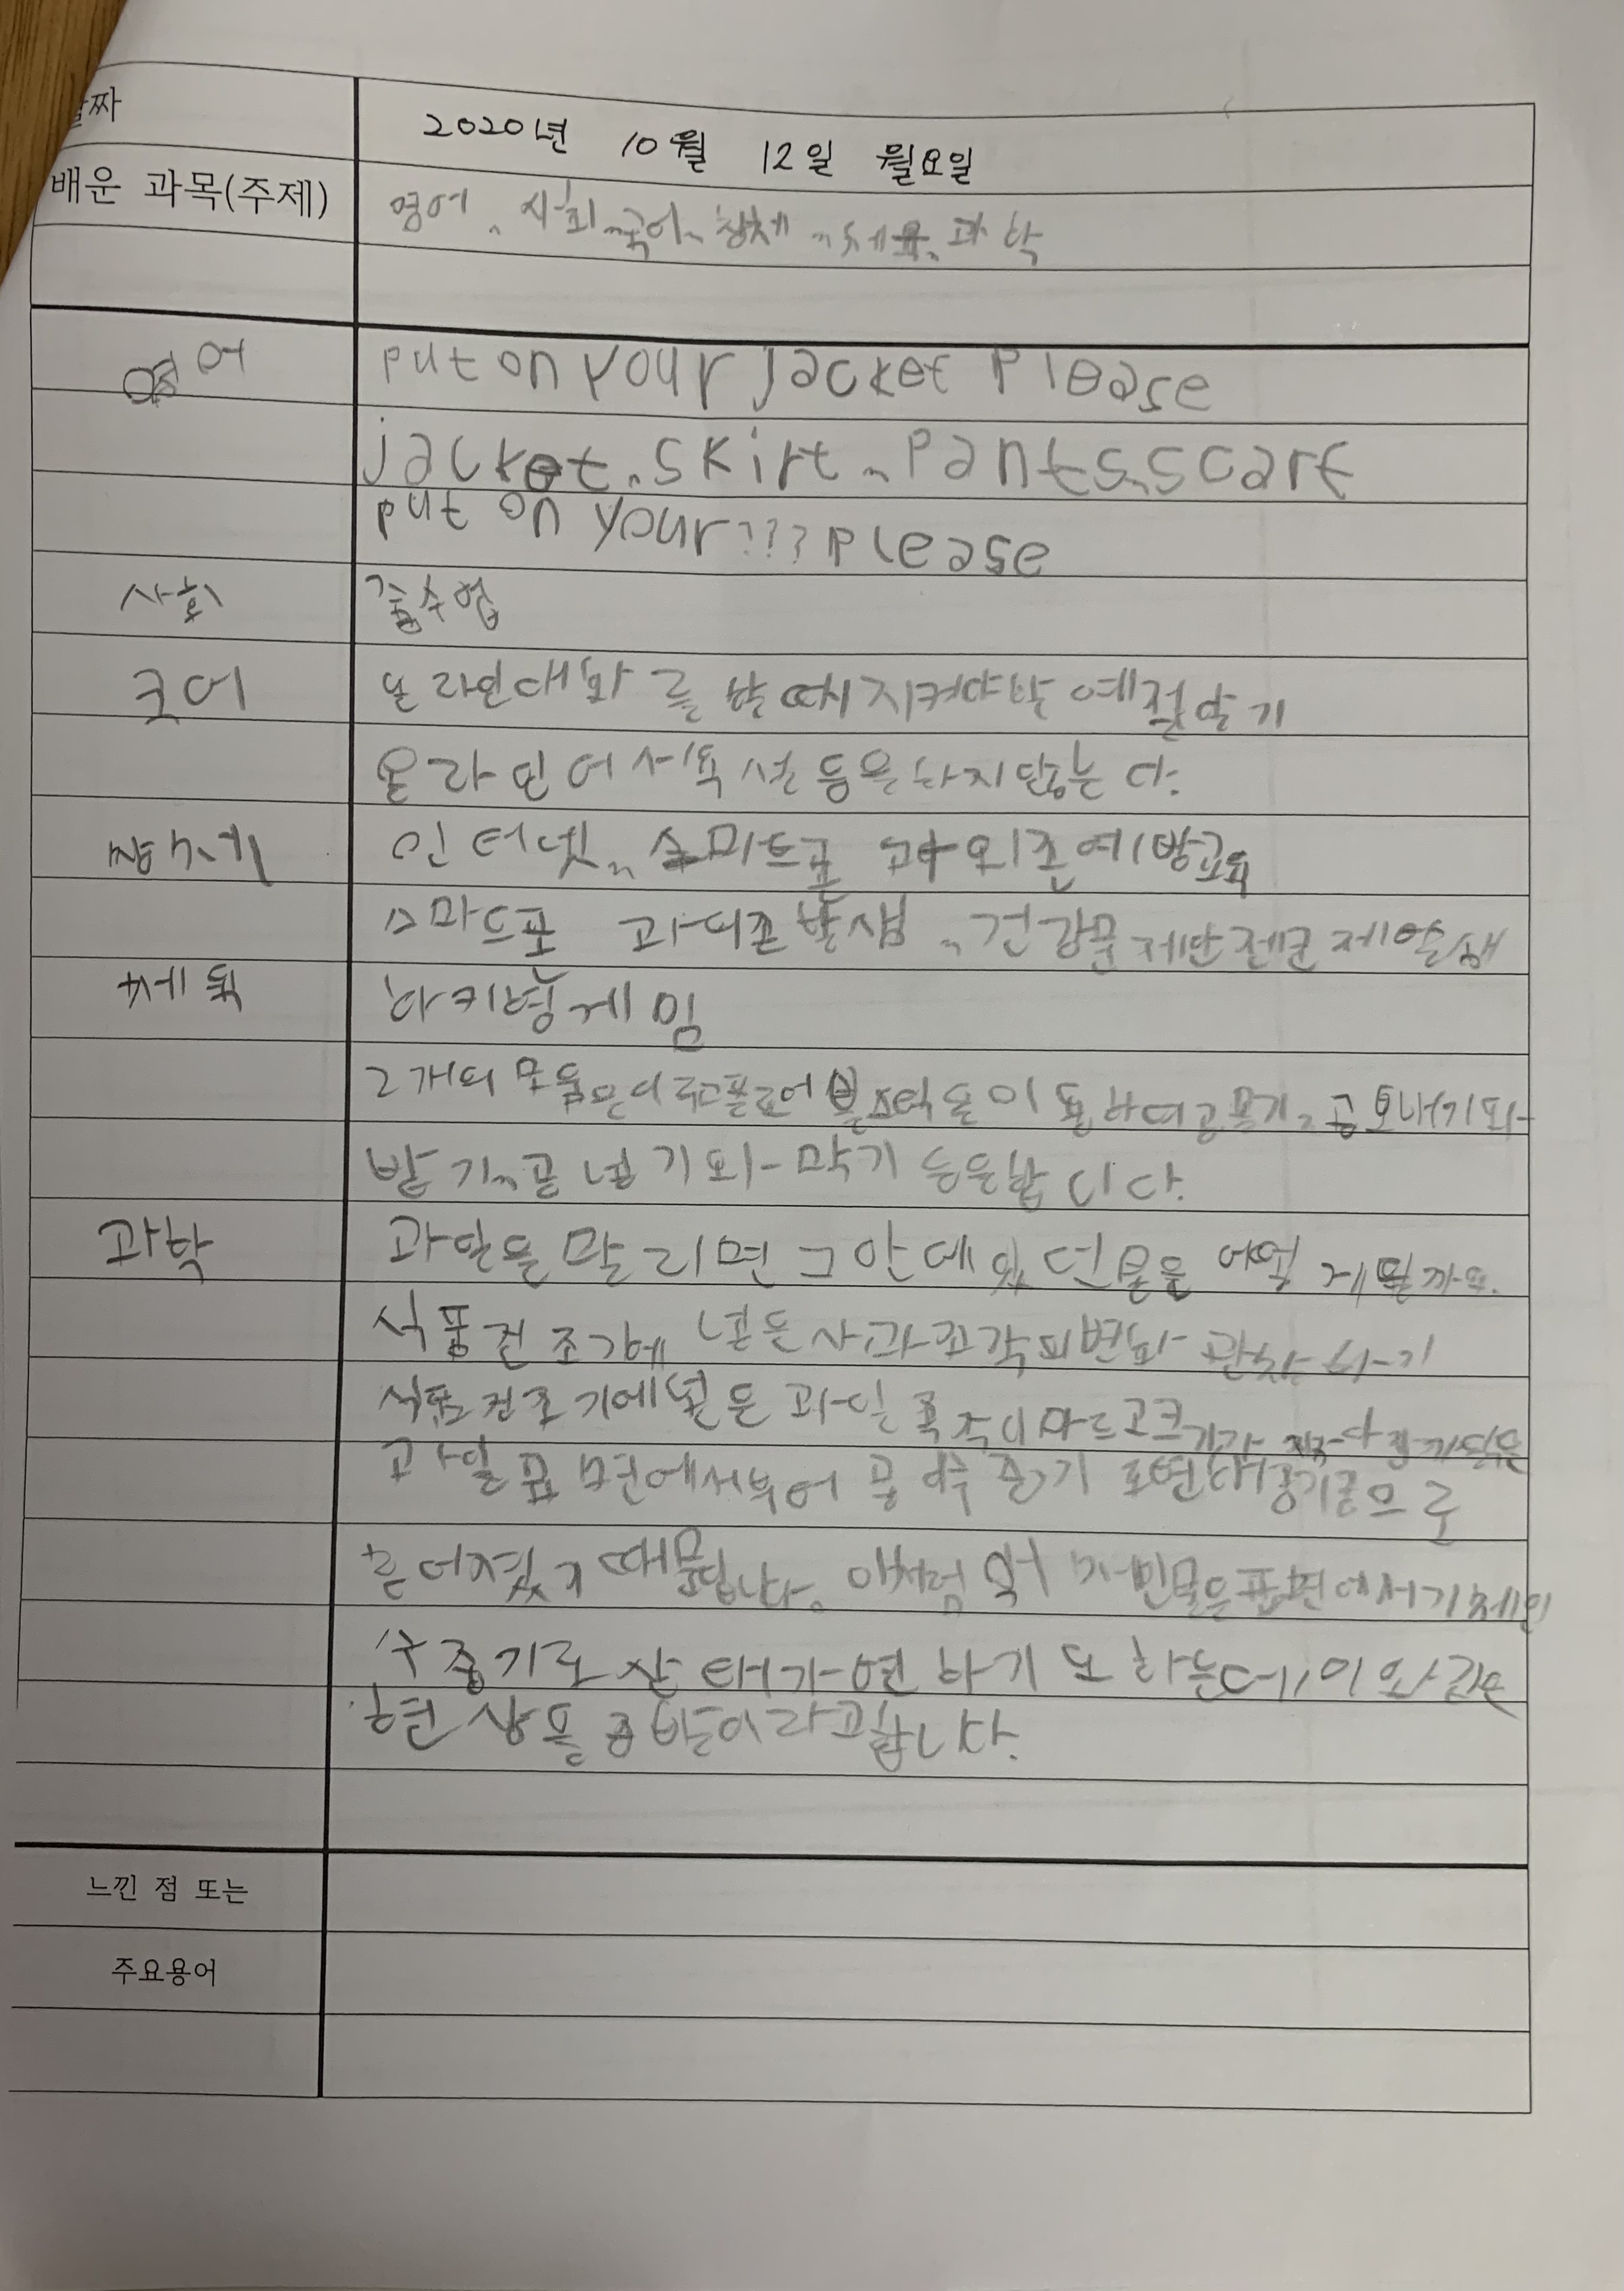 날짜 2020년 10월 12일 월요일
배운 과목(주제) 영어, 사회, 국어, 창체, 체육, 과학
영어 put on your jacket please
jacket, skirt, pants, scarf
put on your ??? please
사회 줌수업
국어 온라인대화를 할때 지켜야할 예절알기
온라인에서 욕설 등을 하지 않는다.
창체 인터넷, 스마트폰 과의존예방교육
스마트폰 과의존발생, 건강문제
체육 하키형게임
2개의 이용하여 공 보내기와
받기, 골 넣기와 막기 등을합니다.
과학 과일을 말리면 그 안에 있던물은 어떻게될까요.
식품건조기에 넣은 사과조각의변화 관찰하기
식품건조기에넣은 과일 크기가
과일 표면에서부터 공기중으로
흩어졌기 때문입니다. 이처럼 액체인물은표면에서기체인
수증기로 상태가변하기도 하는데 이와같은
현상을 증발이라고합니다.
느낀 점 또는
주요용어